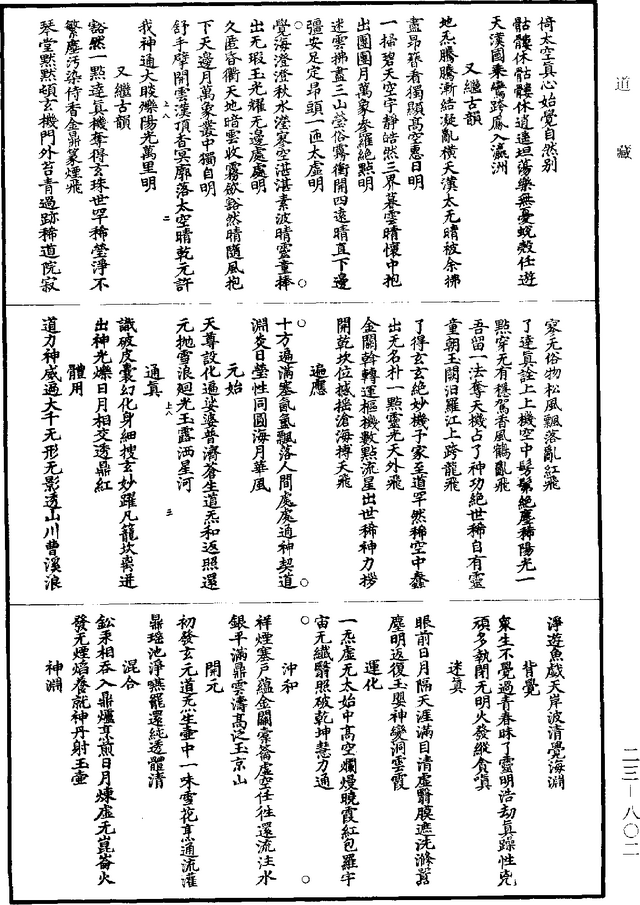 道藏
倚太空真心始覺自然別
骷髏休骷髏休逍遙坦蕩樂無憂蛻殼任遊
天漢國乘鸞跨鳳入瀛洲
又繼古韻
地炁騰騰漸結凝亂橫天漢太无晴被余拂
盡昂藜看獨顯高空惠日明
一掃碧天空宇靜皓然三界暮雲晴懷中抱
出團團月萬象參羅絕點明
迷雲拂盡三山瑩俗霧衝開四遠晴直下邊
彊安足定昂頭一匝太虛明
覺海澄澄秋水瀅寒空湛湛素波晴靈童捧
出无瑕玉光耀无邊處處明
久匿昏衢天地暗雲收霧歛豁然晴隨風抱
下天邊月萬象叢中獨自明
舒手擘開雲漢頂杳冥廓落太空晴乾元許
我神通大晱爍陽光萬里明
又繼古韻
豁然一點達真機奪得玄珠世罕稀瑩淨不
繁塵污染侍香金鼎篆煙飛
琴堂黙黙頓玄機門外苔青過跡稀道院寂
上八
二
家无俗物松風飄落亂紅飛
了達真詮上上機空中髣髴絕塵稀陽光一
點穿无有穩駕香風鶴亂飛
吾留一法奪天機占了神功絕世稀自有靈
童朝玉闕汩羅江上跨龍飛
了得玄玄絕妙機子家至道罕然稀空中鼇
出无名朴一點靈光天外飛
金關斡轉運樞機數點流星出世稀神力拶
開乾坎位撼搖滄海摶天飛
遍應
十方遍滿塞氤氳飄落人間處處通神契道
淵炎日瑩性同圓海月華風
元始
天尊設化遍娑婆普濟蒼生道炁和返照還
元抛雪浪廻光玉露洒星河
通真
識破皮囊幻化身細搜玄妙躍凡籠坎离迸
出神光爍日月相交透鼎紅
體用
道力神威遍大千无形无影透山川曹溪浪
上八
三
淨遊魚戲天岸波清覺海淵
背覺
衆生不覺過青春昧了靈明浩劫真躁性兇
頑多執閉无明火發縱貪嗔
迷真
眼前日月隔天涯滿目清虛翳膜遮洗滌囂
塵明返復玉嬰神變洞雲霞
運化
一炁虛无太始中高空爛熳曉霞紅包羅宇
宙无纖翳照破乾坤慧力通
沖和
祥煙塞戶蘊金闕霦崙虛空任徃還流注水
銀平滿鼎雲濤高泛玉京山
開元
初發玄元道炁生壺中一味雪花烹通流灌
鼎瑶池淨燕罷還純透體清
混合
鈆汞相吞入鼎爐烹煎日月煉虛无崑崙火
發无煙焰養就神丹射玉壺
神淵
二三－八〇二